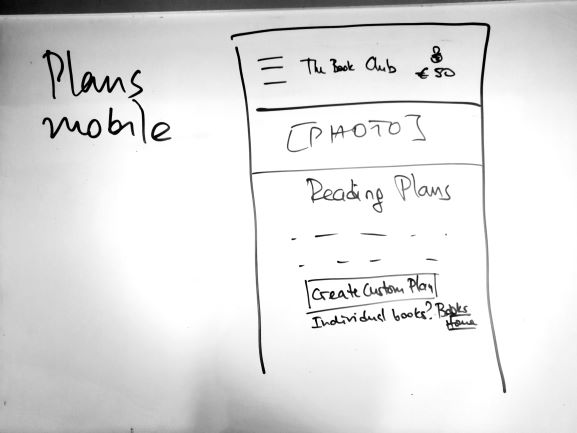 Plans
mobile
The Book Club
€ 50
[PHOTO]
Reading Plans
Create Custom Plan
Individual books? Books
Home